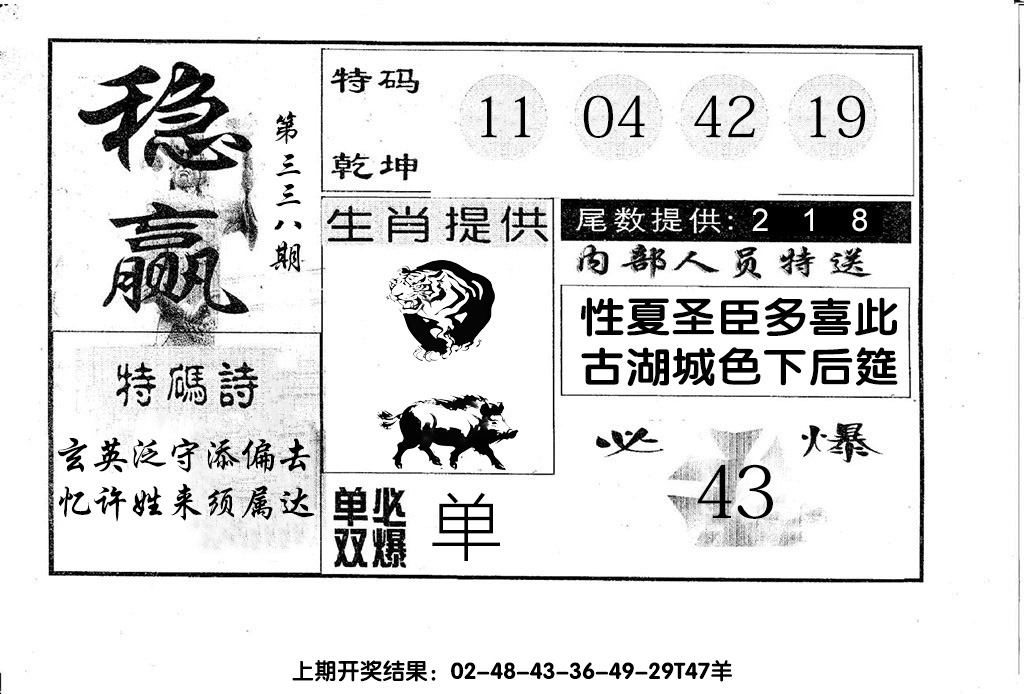 稳赢
第三三八期
特码
乾坤
11 04 42 19
生肖提供
尾数提供: 2 1 8
内部人员特送
性夏圣臣多喜此
古湖城色下后筵
特碼詩
玄英泛守添偏去
忆许姓来须属达
单双
必爆
单
必爆
43
上期开奖结果：02-48-43-36-49-29T47羊